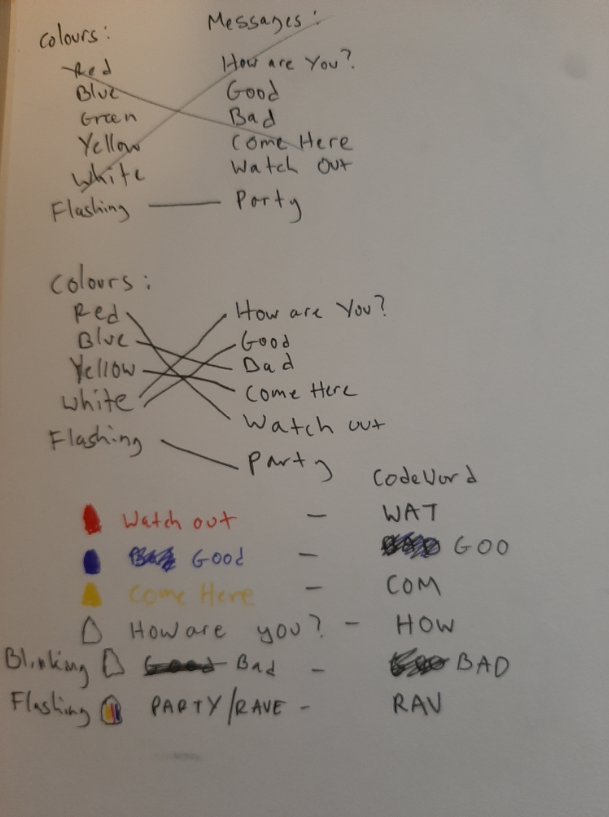 Colours: Messages:
Red How are You?
Blue Good
Green Bad
Yellow Come Here
White Watch Out
Flashing Party
Colours:
Red How are You?
Blue Good
Yellow Bad
White Come Here
Watch out
Flashing Party
CodeWord
Watch out - WAT
Good - GOO
Come Here - COM
How are you? - HOW
Blinking Good Bad - BAD
Flashing PARTY/RAVE - RAV